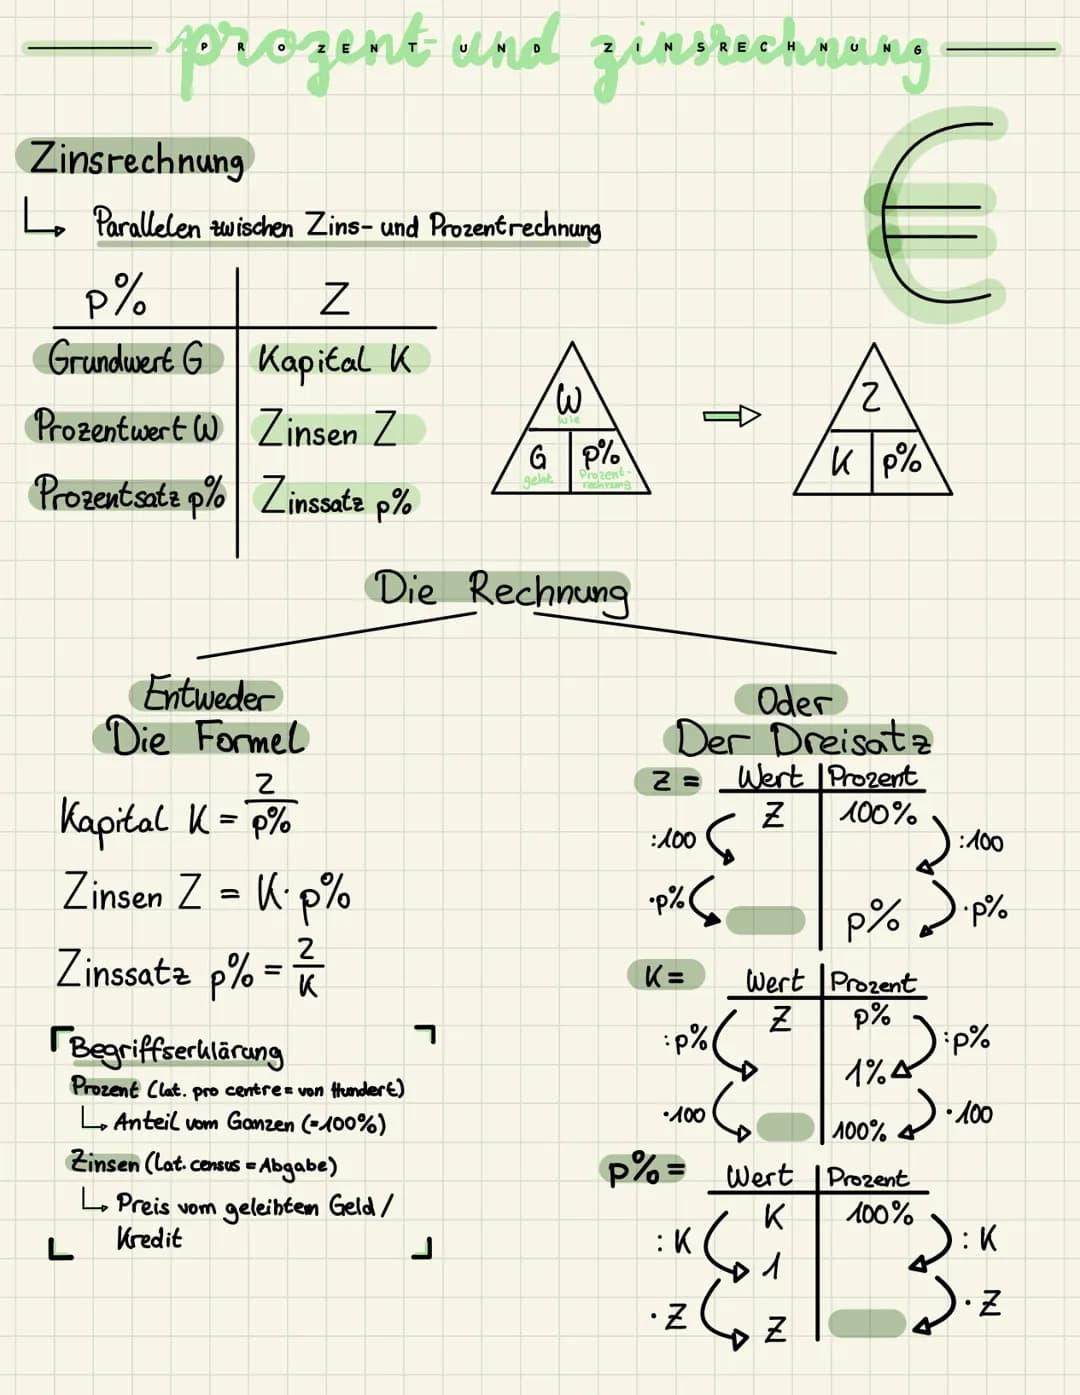 prozent- und zinsrechnung
PROZENT UND ZINSRECHNUNG
Zinsrechnung
Parallelen zwischen Zins- und Prozentrechnung
p% | Z
Grundwert G | Kapital K
Prozentwert W | Zinsen Z
Prozentsatz p% | Zinssatz p%
W
wie
G | p%
geht Prozent-
rechnung
Z
K | p%
€
Die Rechnung
Entweder
Die Formel
Kapital K = Z/p%
Zinsen Z = K · p%
Zinssatz p% = Z/K
Begriffserklärung
Prozent (lat. pro centre = von Hundert)
Anteil vom Ganzen (=100%)
Zinsen (Lat. census = Abgabe)
Preis vom geleihtem Geld /
Kredit
Oder
Der Dreisatz
Z = Wert | Prozent
Z | 100%
:100 :100
·p% ·p%
p%
K = Wert | Prozent
Z | p%
:p% :p%
1%
·100 ·100
100%
p% = Wert | Prozent
K | 100%
:K :K
1
·Z ·Z
Z